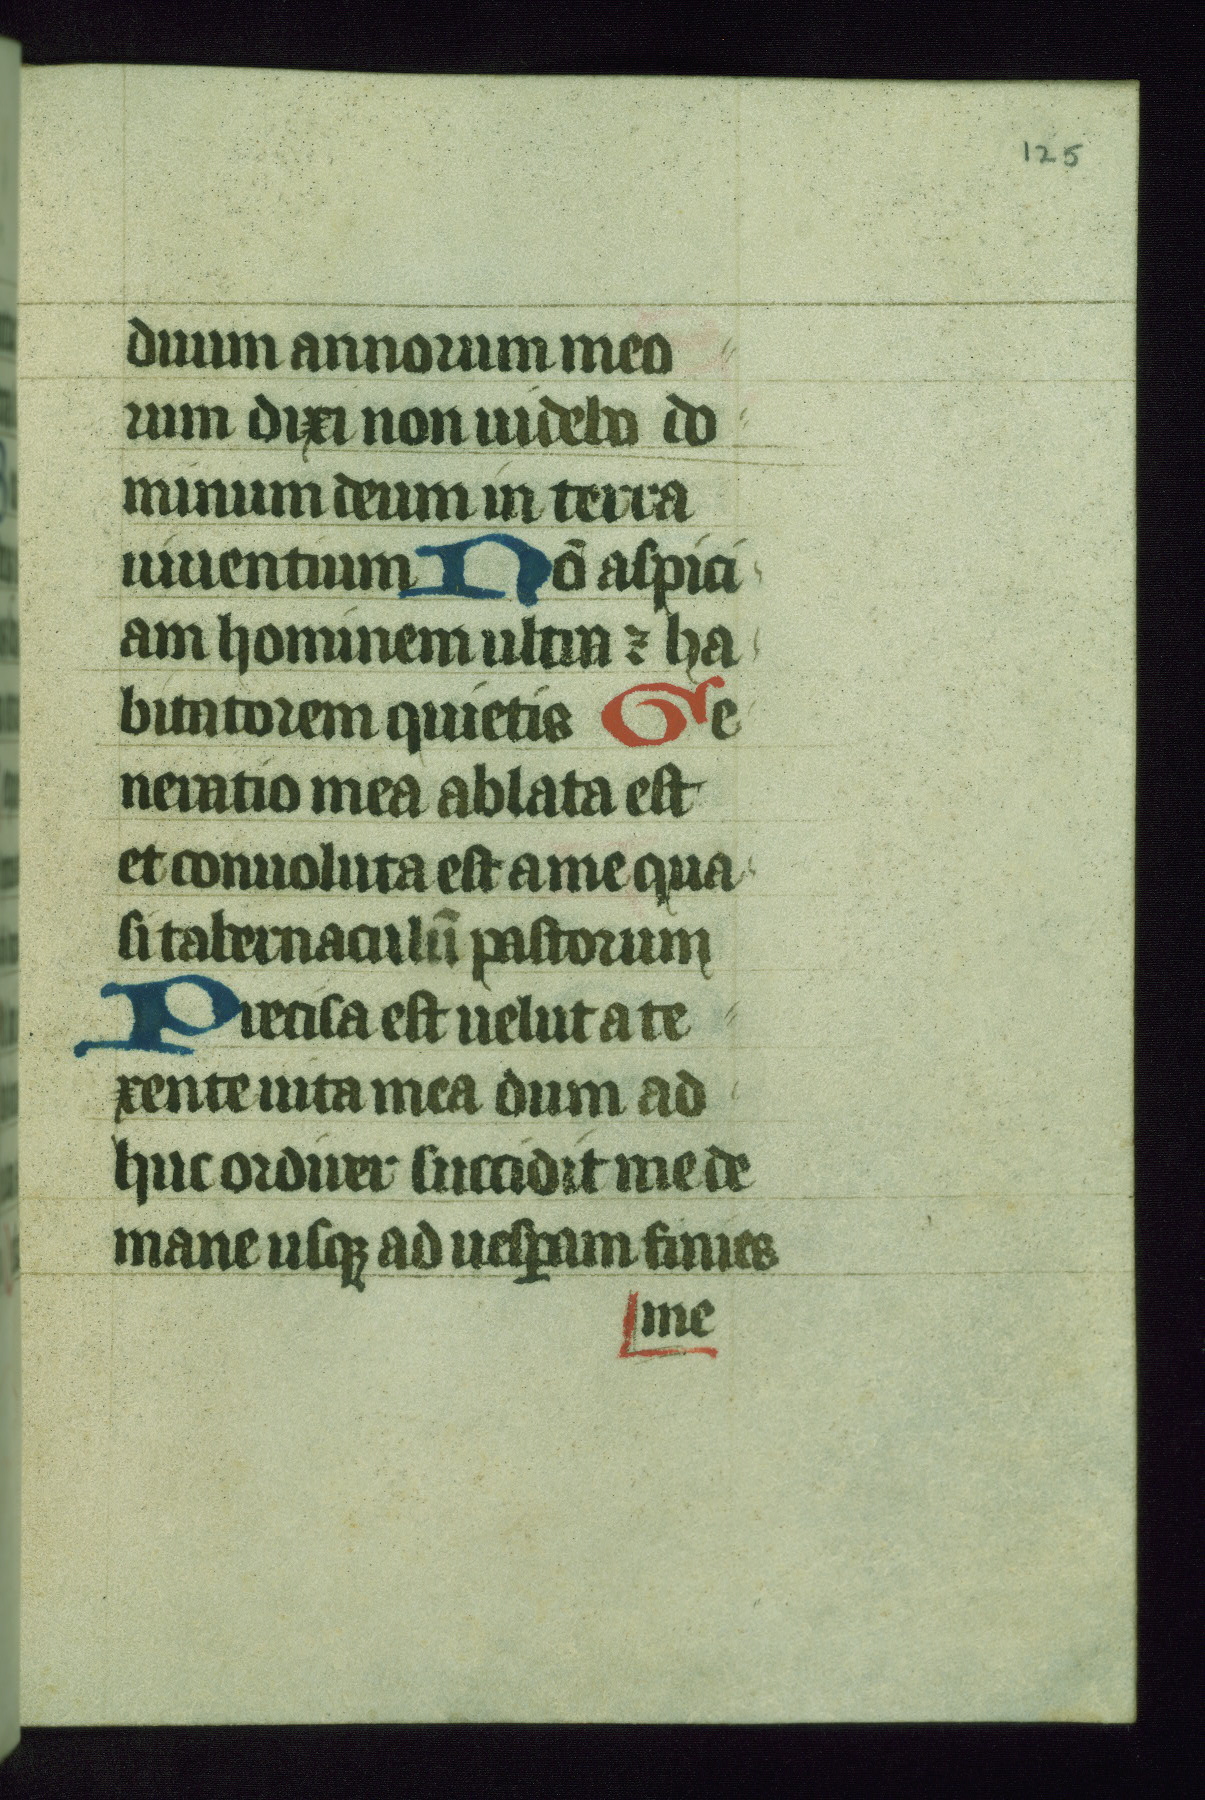 125
duum annorum meo
rum dixi non uidebo do
minum deum in terra
uiuentium Nō aspici
am hominem ultra ⁊ ha
bitatorem quietis Ge
neratio mea ablata est
et conuoluta est a me qua
si tabernaculū pastorum
Precisa est uelut a te
xente uita mea dum ad
huc ordirer succidit me de
mane usqꝫ ad uesꝑam finies
me